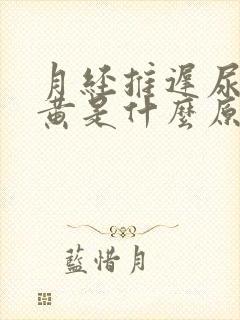 月经推遲尿
黄是什麼原
藍惜月